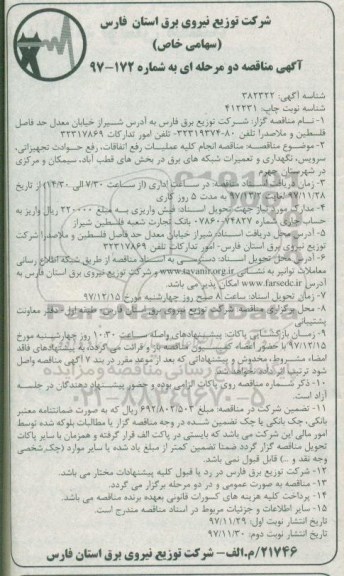 شرکت توزیع نیروی برق استان فارس
(سهامی خاص)
آگهی مناقصه دو مرحله ای به شماره ۱۷۲-۹۷
شناسه آگهی: ۳۸۲۳۲۲
شناسه نوبت چاپ: ۴۱۲۲۳۱
۱- نام مناقصه گزار: شرکت توزیع برق فارس به آدرس شیراز خیابان معدل حد فاصل
فلسطین و ملاصدرا تلفن ۸۰-۳۲۳۱۹۳۷۴ تلفن امور تدارکات ۳۲۳۱۷۸۶۹
۲- موضوع مناقصه: مناقصه انجام کلیه عملیات رفع اتفاقات، رفع حوادث تجهیزاتی،
سرویس، نگهداری و تعمیرات شبکه های برق در بخش های قطب آباد، سیمکان و مرکزی
در شهرستان جهرم
۳- زمان دریافت اسناد مناقصه: در ساعات اداری (از ساعت ۷:۳۰ الی ۱۴:۳۰) از تاریخ
۹۷/۱۱/۳۸ لغایت ۹۷/۱۲/۲ به مدت ۵ روز کاری
۴- مدارک مورد نیاز جهت تحویل اسناد: فیش واریزی به مبلغ ۲۲۰۰۰۰ ریال واریز به
حساب جاری شماره بانک تجارت شعبه فلسطین شیراز
۵- آدرس محل دریافت اسناد: شیراز خیابان معدل حد فاصل فلسطین و ملاصدرا شرکت
توزیع نیروی برق استان فارس- امور تدارکات تلفن ۳۲۳۱۷۸۶۹
۶- آدرس محل تحویل اسناد: دسترسی به اسناد مناقصه از طریق شبکه اطلاع رسانی
معاملات توانیر به نشانی www.tavanir.org.ir و شرکت توزیع نیروی برق استان فارس به
آدرس www.farsedc.ir امکان پذیر می باشد.
۷- زمان تحویل اسناد: ساعت ۸ صبح روز چهارشنبه مورخ ۹۷/۱۲/۱۵
۸- محل برگزاری مناقصه: شرکت توزیع نیروی برق استان فارس- طبقه اول- دفتر معاونت
پشتیبانی
۹- زمان بازگشایی پاکات: پیشنهادهای واصله ساعت ۱۰:۳۰ روز چهارشنبه مورخ
۹۷/۱۲/۱۵ با حضور اعضاء کمیسیون مناقصه باز و قرائت می گردد. به پیشنهادهای فاقد
امضاء، مشروط، مخدوش و پیشنهاداتی که بعد از موعد مقرر در بند ۷ آگهی مناقصه واصل
شود ترتیب اثر داده نخواهد شد.
۱۰- ذکر شماره مناقصه روی پاکات الزامی بوده و حضور پیشنهاد دهندگان در جلسه
آزاد است.
۱۱- تضمین شرکت در مناقصه: مبلغ ۶۹۲/۸۰۲/۵۰۳ ریال که به صورت ضمانتنامه معتبر
بانکی، چک بانکی یا چک تضمین شده در وجه مناقصه گزار یا مطالبات بلوکه شده توسط
امور مالی این شرکت می باشد که بایستی در پاکت الف قرار گرفته و همزمان با سایر پاکات
تحویل مناقصه گزار گردد ضمنا تضمین کمتر از مبلغ یاد شده یا سایر موارد (چک شخصی
وجه نقد و ...) قابل قبول نمی باشد.
۱۲- شرکت توزیع برق فارس در رد یا قبول کلیه پیشنهادات مختار می باشد.
۱۳- مناقصه به صورت عمومی و در دو مرحله برگزار می گردد.
۱۴- پرداخت کلیه هزینه های کسورات قانونی بعهده برنده مناقصه می باشد.
۱۵- سایر اطلاعات و جزئیات مربوط در اسناد مناقصه مندرج است.
تاریخ انتشار نوبت اول: ۹۷/۱۱/۲۹
تاریخ انتشار نوبت دوم: ۹۷/۱۱/۳۰
۲۱۷۴۶/م.الف- شرکت توزیع نیروی برق استان فارس
۰۲۱-۸۸۳۴۹۶۷۰-۵